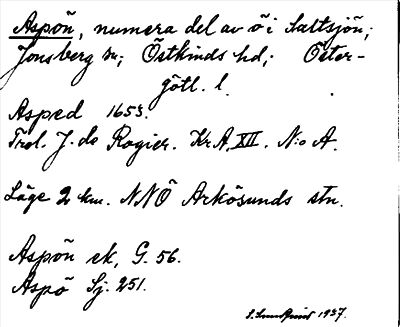 Aspön, numera del av ö i Saltsjön;
Jonsberg sn; Östkinds hd; Öster-
götl. l.
Asped 1653.
Trol. J. de Rogier. KrA, XII. N:o A.
Läge 2 km. NNÖ Arkösunds stn.
Aspön ek, G. 56.
Aspö Sj. 251.
1937.